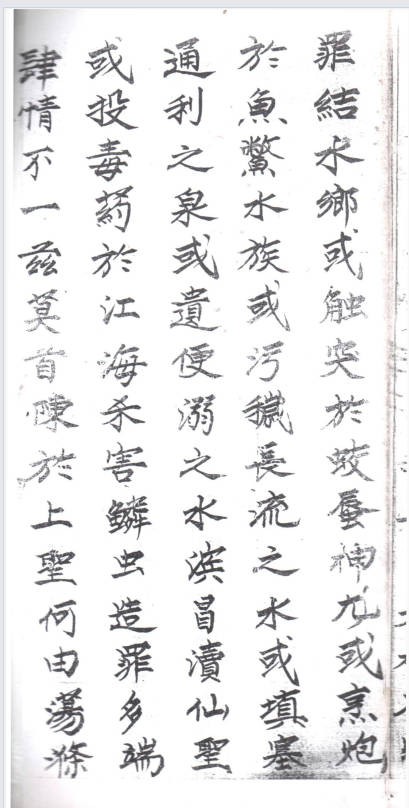 罪結水鄉或触突於蛟蜃神尤或烹炮
於魚鱉水族或污穢長流之水或填塞
通利之泉或遺便溺之水濱冒瀆仙聖
或投毒葯於江海杀害鱗虫造罪多端
肆情不一兹莫首陳於上聖何由蕩滌